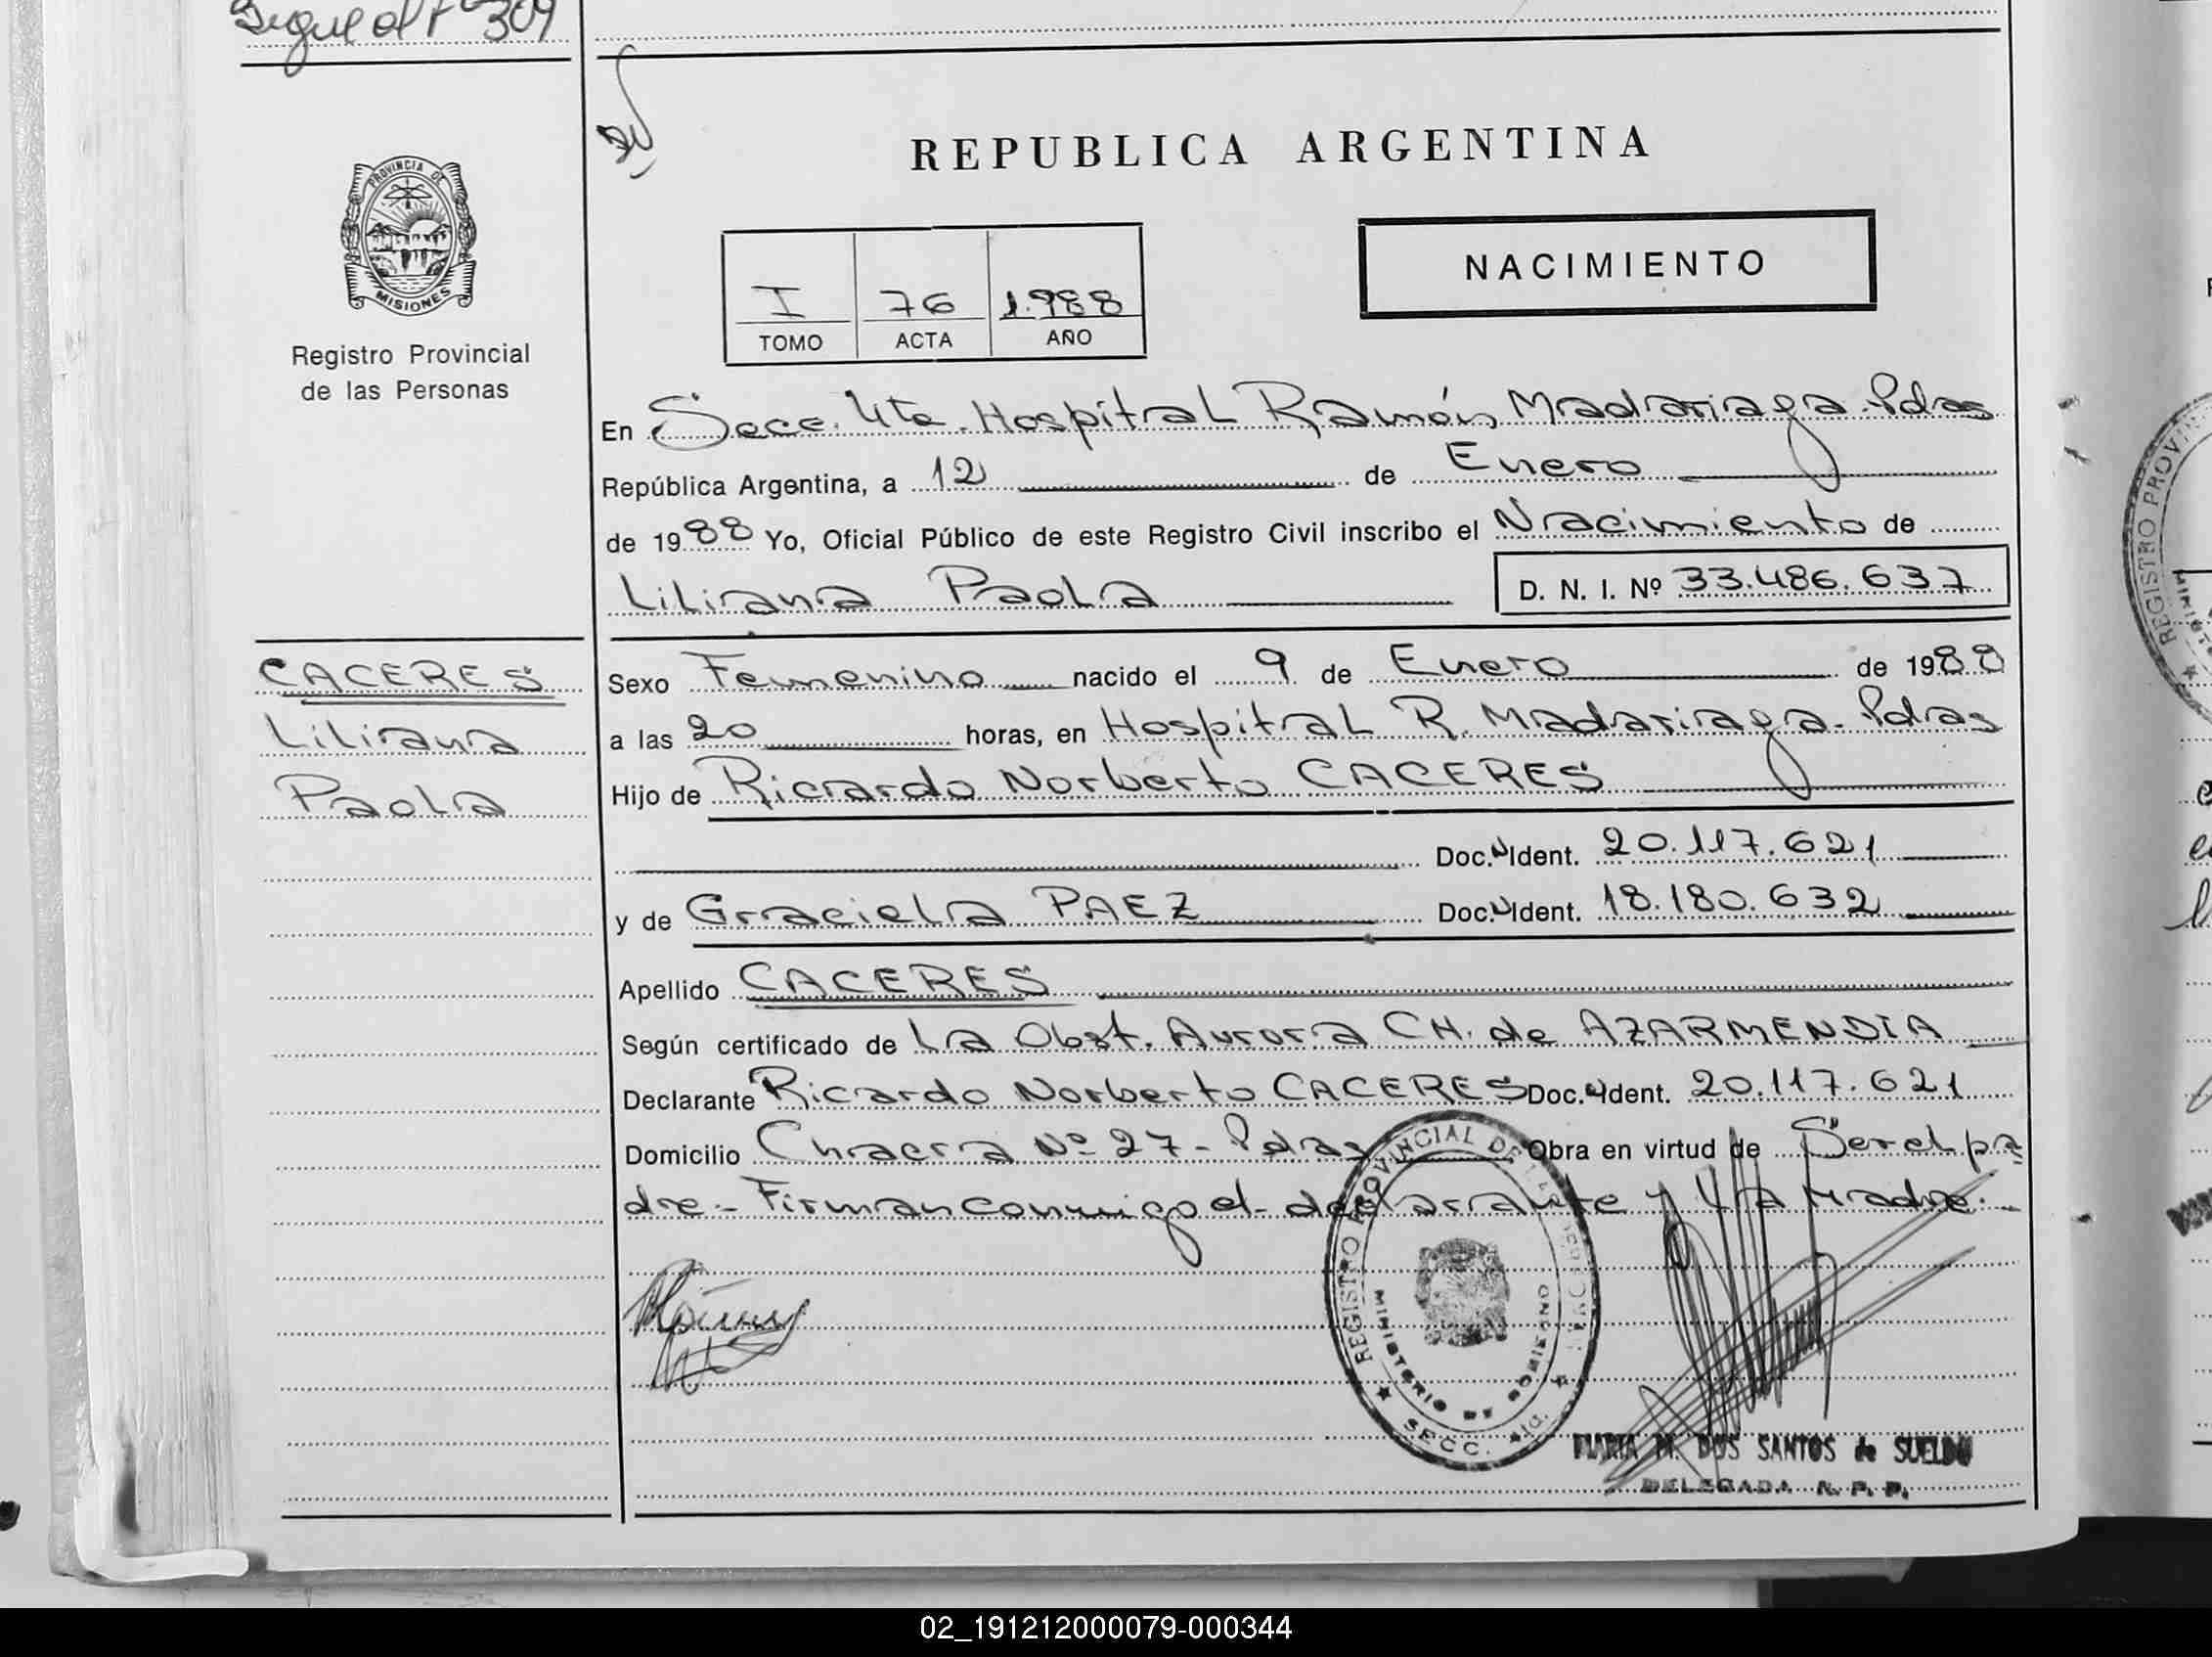 Sigue al Fº 309
PROVINCIA DE
MISIONES
Registro Provincial
de las Personas
REPUBLICA ARGENTINA
NACIMIENTO
I 76 1.988
TOMO ACTA AÑO
En Secc. 4ta. Hospital Ramón Madariaga. Pdas
República Argentina, a 12 de Enero
de 1988 Yo, Oficial Público de este Registro Civil inscribo el Nacimiento de
Liliana Paola D. N. I. Nº 33.486.637
CACERES
Liliana
Paola
Sexo Femenino nacido el 9 de Enero de 1988
a las 20 horas, en Hospital R. Madariaga. Pdas
Hijo de Ricardo Norberto CACERES
Doc. Ident. 20.117.621
y de Graciela PAEZ Doc. Ident. 18.180.632
Apellido CACERES
Según certificado de La Obst. Aurora CH. de AZARMENDIA
Declarante Ricardo Norberto CACERES Doc. Ident. 20.117.621
Domicilio Chacra Nº 27 - Pdas Obra en virtud de Ser el pa
dre - Firman conmigo el declarante y la Madre. -
REGISTRO PROVINCIAL DE LAS PERSONAS
MINISTERIO DE GOBIERNO
SECC. 4ta.
MARIA M. DOS SANTOS de SUELDO
DELEGADA R. P. P.
REGISTRO PROVIN
02_191212000079-000344